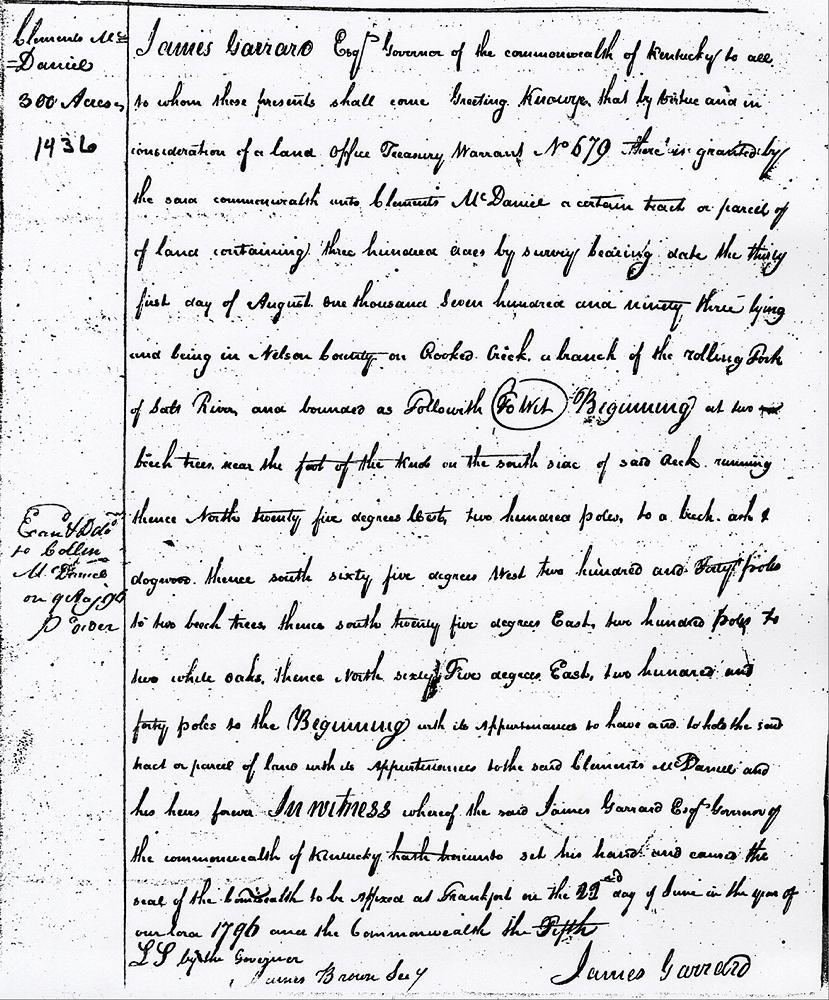 Clements Mc
=Daniel
300 Acres
1436
James Garrard Esqr Governor of the commonwealth of Kentucky to all
to whom these presents shall come Greeting. Know ye, that by virtue and in
consideration of a land Office Treasury Warrant No 679 there is granted by
the said commonwealth unto Clements McDaniel a certain tract or parcel of
of land containing three hundred acres by survey bearing date the thirty
first day of August. one thousand Seven hundred and ninety three lying
and being in Nelson County on Rooked Creek. a branch of the rolling Fork
of Salt River and bounded as Followith To Wit Beginning at two
beech trees near the foot of the Knob on the south side of said Creek. running
thence North twenty five degrees West, two hundred poles, to a beech. ash &
dogwood. thence south sixty five degrees West two hundred and Forty poles
to two beech trees thence south twenty five degrees East, two hundred poles to
two white oaks, thence North sixty Five degrees East, two hundred and
forty poles to the Beginning with its Appurtenances to have and to hold the said
tract or parcel of land with its Appurtenances to the said Clements McDaniel and
his heirs forever In witness whereof the said James Garrard Esqr Governor of
the commonwealth of Kentucky hath hereunto set his hand and caused the
seal of the Comwealth to be Affixed at Frankfort on the 22nd day of June in the year of
our Lord 1796 and the Commonwealth the Fifth
LS by the Governor
James Brown Secy
James Garrard
to Collin
McDaniel
on
order